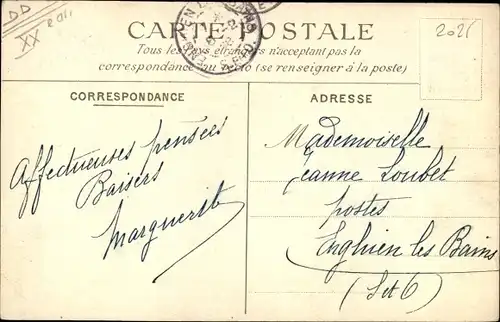 DD
XX
2025
CARTE POSTALE
Tous les pays étrangers n'acceptant pas la
correspondance au recto (se renseigner à la poste)
CORRESPONDANCE
ADRESSE
Affectueuses pensées
Baisers
Marguerite
Mademoiselle
Jeanne Loubet
postes
Enghien les Bains
(S et O)